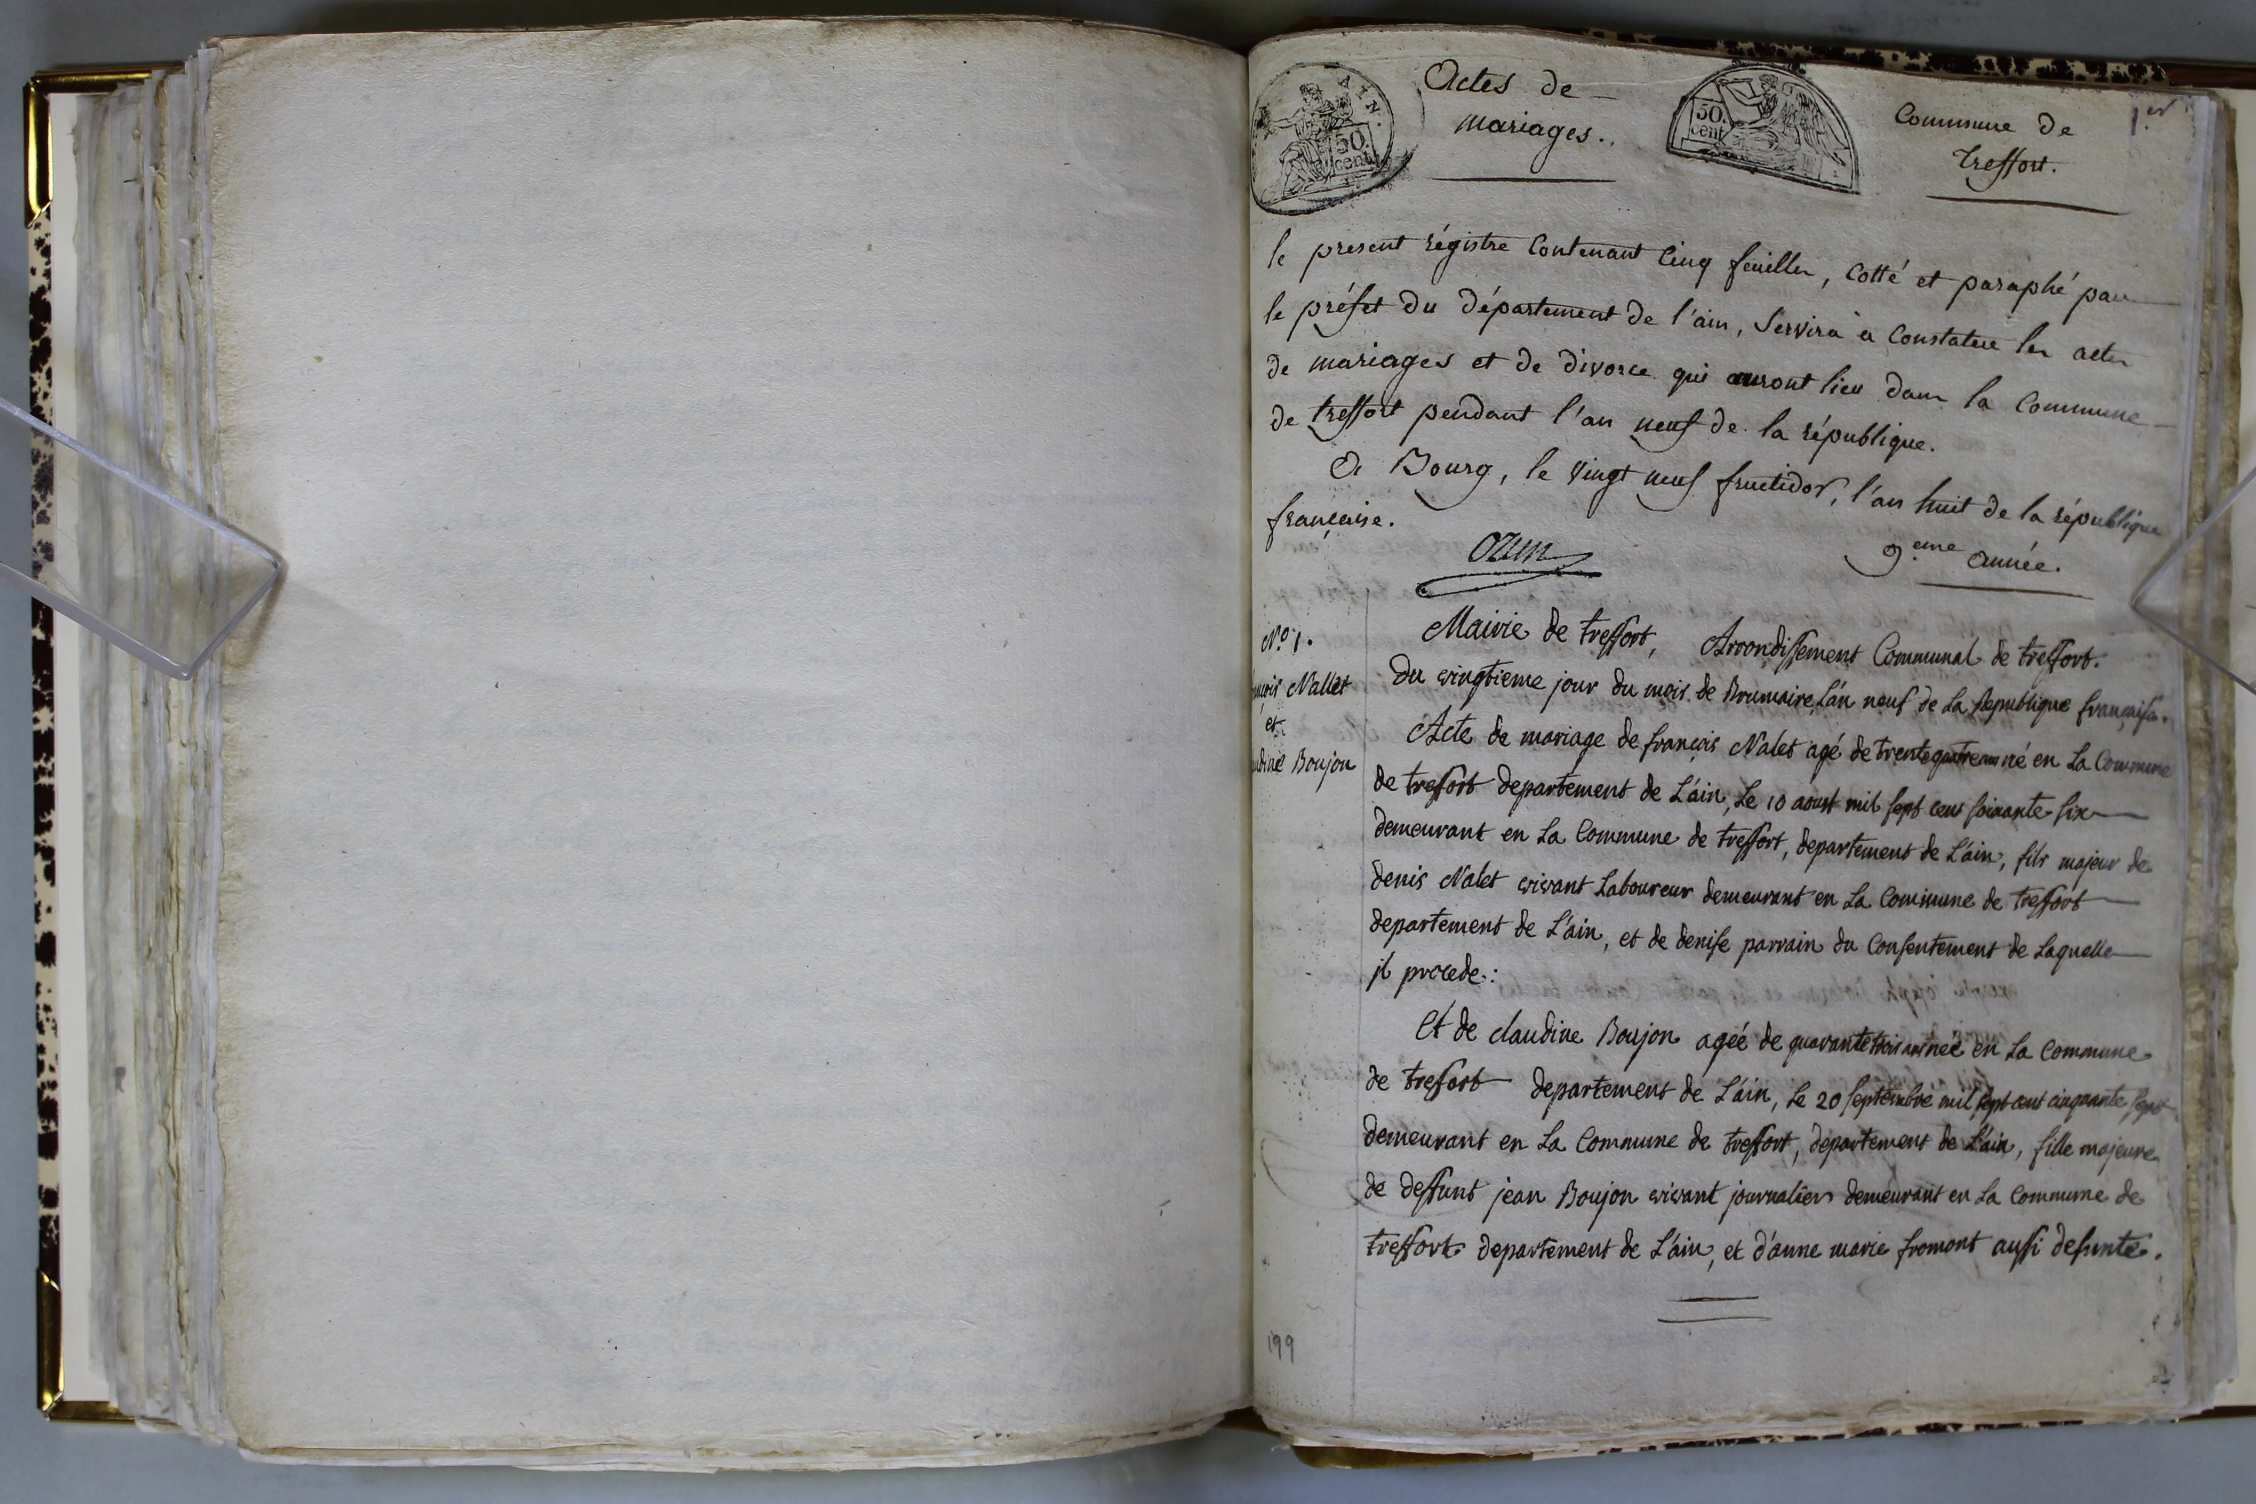 Actes de
mariages.
AIN.
50.
cent
50.
cent
Commune de
treffort.
1.er
le present régistre Contenant Cinq feuilles, Cotté et paraphé par
le préfet du département de l'ain, Servira à Constater les actes
de mariages et de divorce qui auront lieu dans la Commune
de treffort pendant l'an neuf de la république.
A Bourg, le vingt neuf fructidor, l'an huit de la république
française.
Ozun
9.eme année.
N.o 1.
nçois Nallet
et
udine Boujon
Mairie de treffort, Arrondissement Communal de treffort.
Du vingtieme jour du mois de Brumaire L'an neuf de La Republique française.
Acte de mariage de françois Nalet agé de trente quatre ans né en La Commune
de treffort departement de L'ain, Le 10 aoust mil sept cent soixante six
demeurant en La Commune de treffort, departement de L'ain, fils majeur de
denis Nalet vivant Laboureur demeurant en La Commune de treffort
departement de L'ain, et de denise parrain du Consentement de Laquelle
il procede:
Et de claudine Boujon ageé de quarante trois ans neé en La Commune
de trefort departement de L'ain, Le 20 septembre mil sept cent cinquante sept
demeurant en La Commune de treffort, departement de L'ain, fille majeure
de deffunt jean Boujon vivant journalier demeurant en La Commune de
treffort departement de L'ain, et d'anne marie fromont aussi defunte.
199